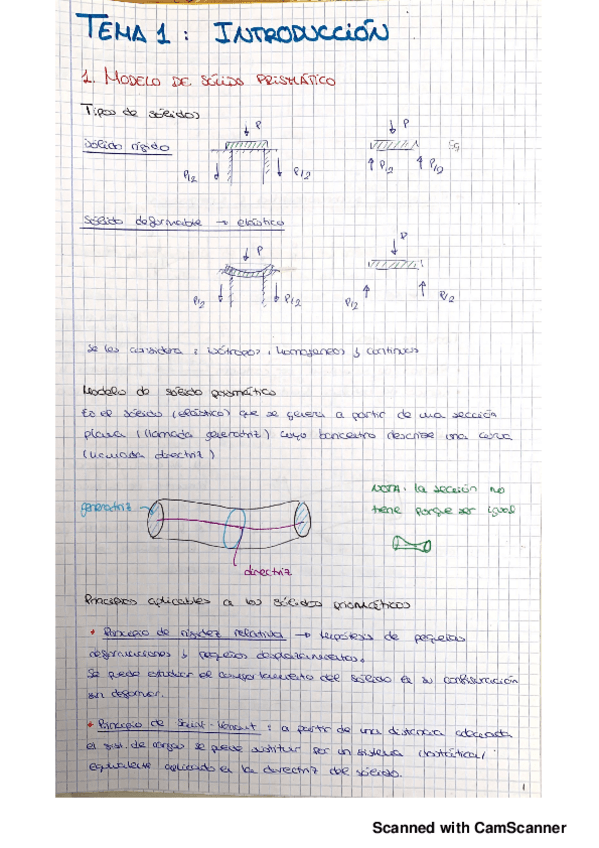 TEMA 1: INTRODUCCIÓN
1. MODELO DE SÓLIDO PRISMÁTICO
Tipos de sólidos
Sólido rígido
P
P
P/2
P/2
P/2
P/2
Sólido deformable → elástico
P
P
P/2
P/2
P/2
P/2
Se les considera: isótropos, homogéneos y continuos
Modelo de sólido prismático
Es el sólido (elástico) que se genera a partir de una sección
plana (llamada generatriz) cuyo baricentro describe una curva
(llamada directriz)
NOTA: la sección no
tiene porque ser igual
generatriz
directriz
Principios aplicables a los sólidos prismáticos
• Principio de rigidez relativa → hipótesis de pequeñas
deformaciones y pequeños desplazamientos.
Se puede estudiar el comportamiento del sólido en su configuración
sin deformar.
• Principio de Saint-Venant: a partir de una distancia adecuada
el sist. de cargas se puede sustituir por un sistema (estático)
equivalente aplicado en la directriz del sólido.
1
Scanned with CamScanner